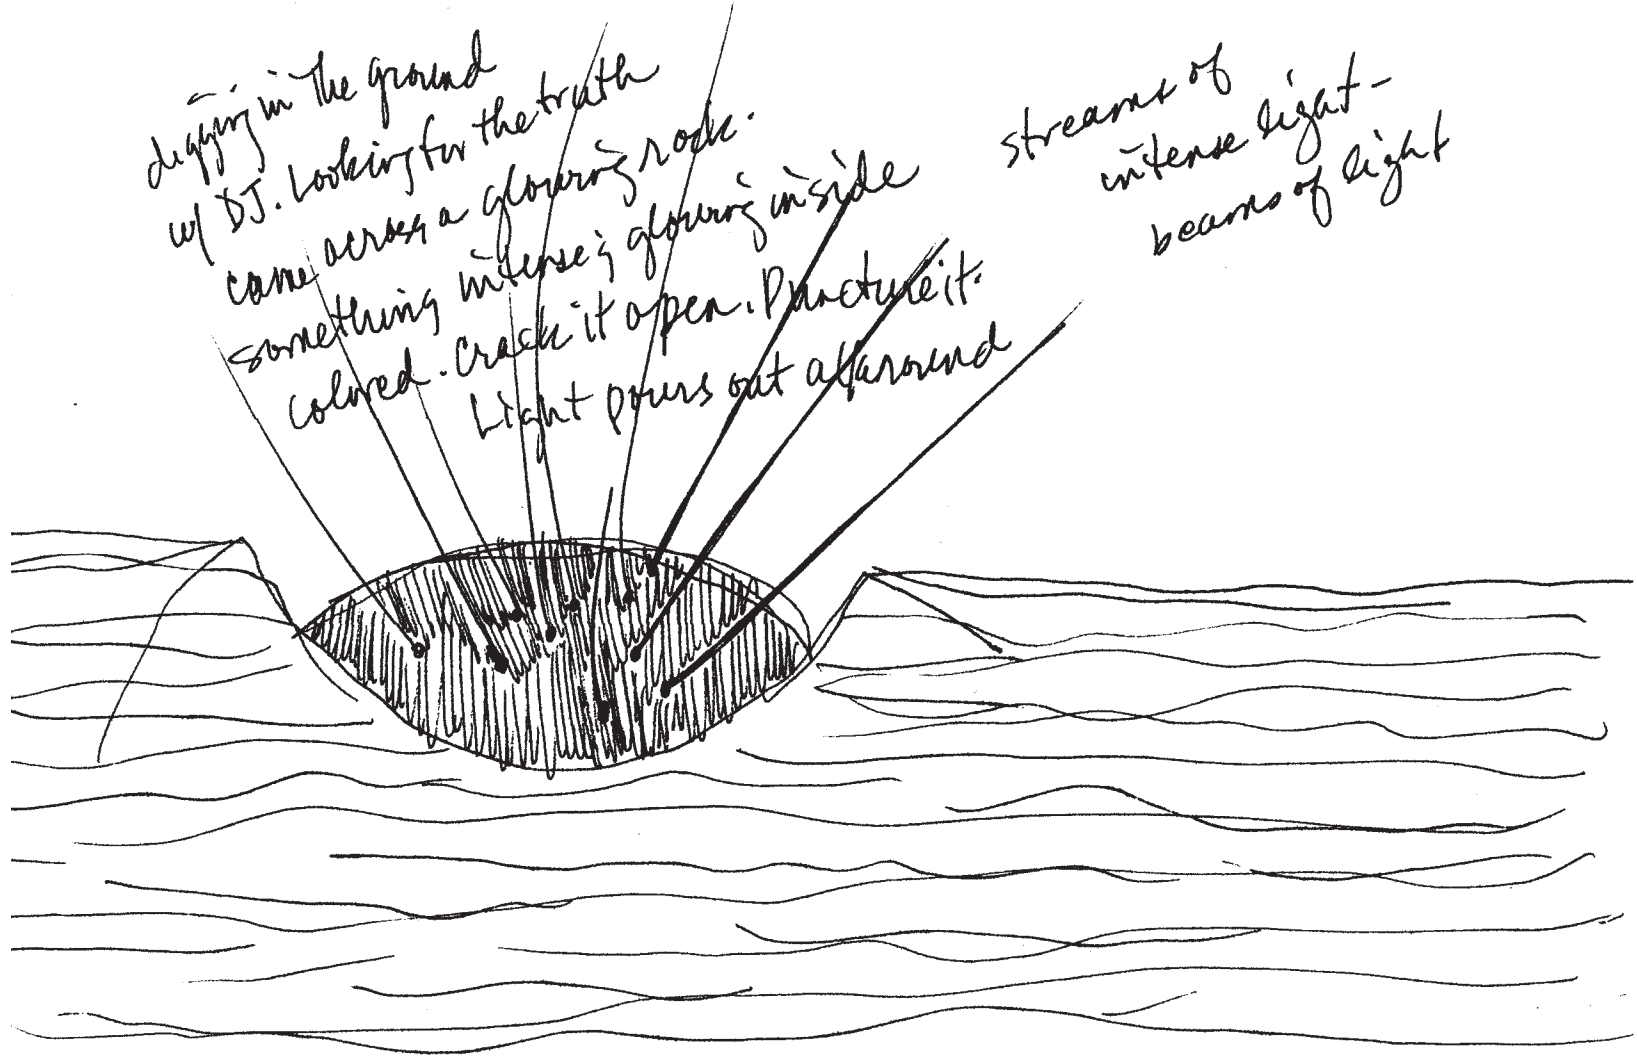 digging in the ground
w/ DJ. Looking for the truth
came across a glowing rock.
something intense & glowing inside
colored. Crack it open. Puncture it.
Light pours out all around
streams of
intense light -
beams of light